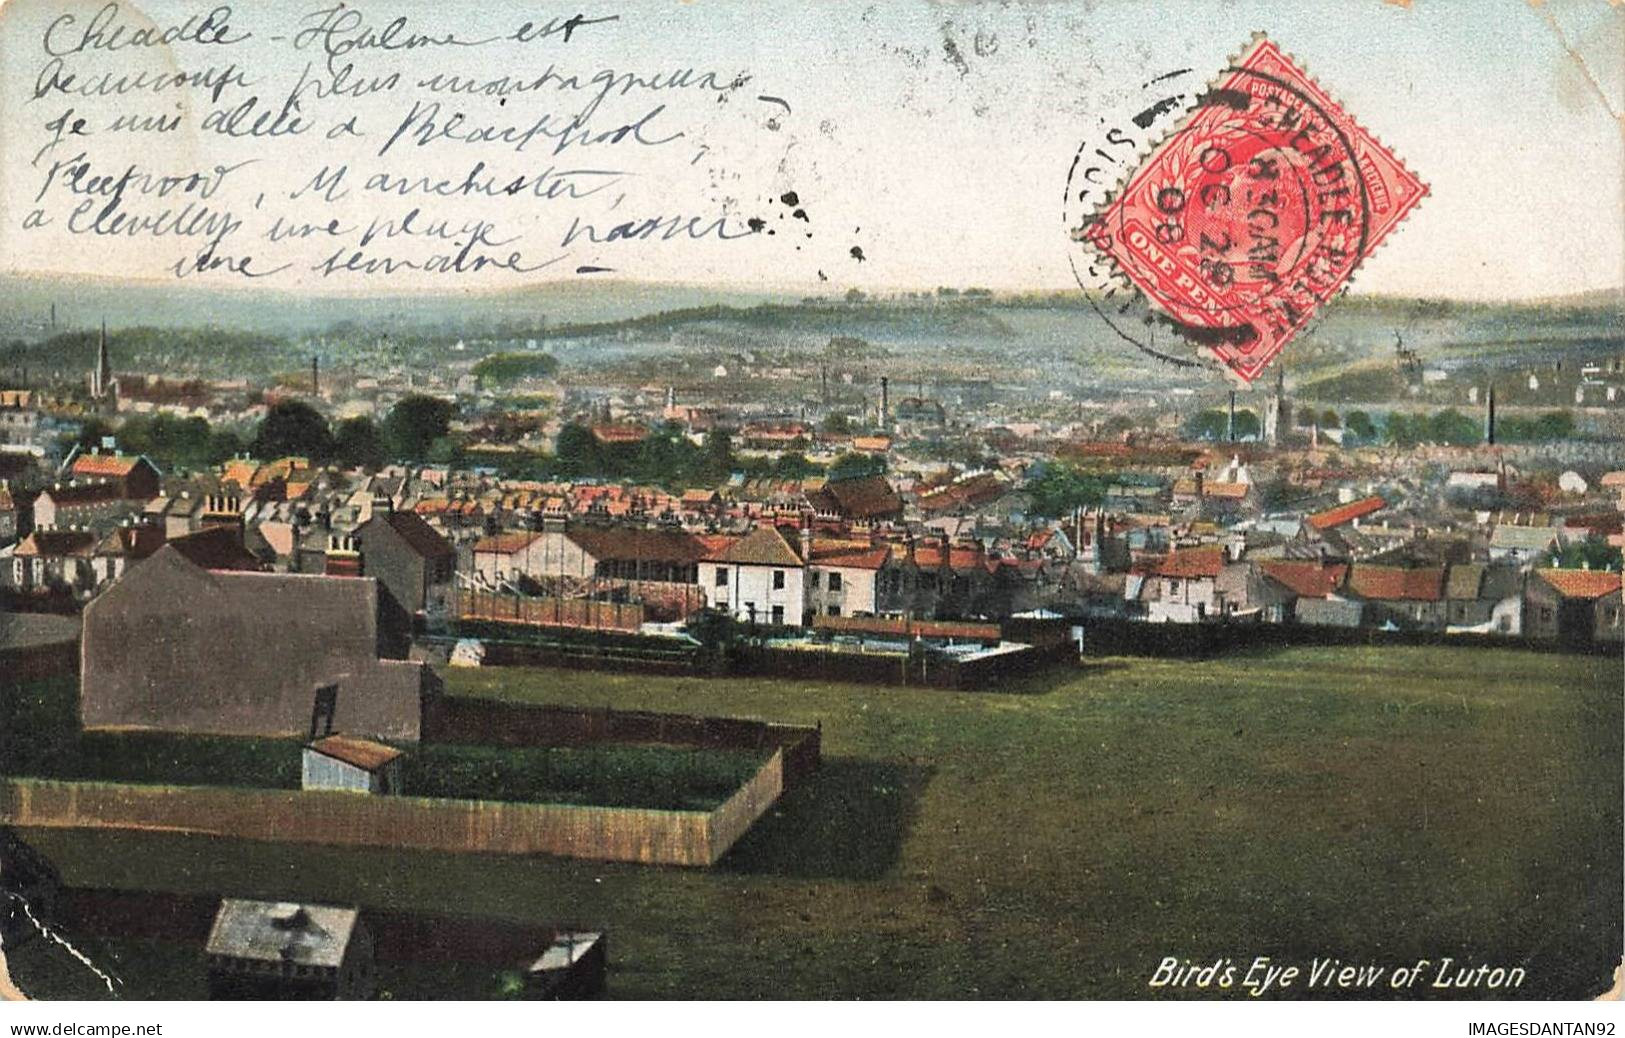 Cheadle-Hulme est
beaucoup plus montagneux
Je suis allée a Blackpool,
Fleetwood, Manchester,
a Cleveleys une plage passer
une semaine
POSTAGE
ONE PENNY
CHEADLE HULME
OC 29
08
Bird's Eye View of Luton
www.delcampe.net
IMAGESDANTAN92